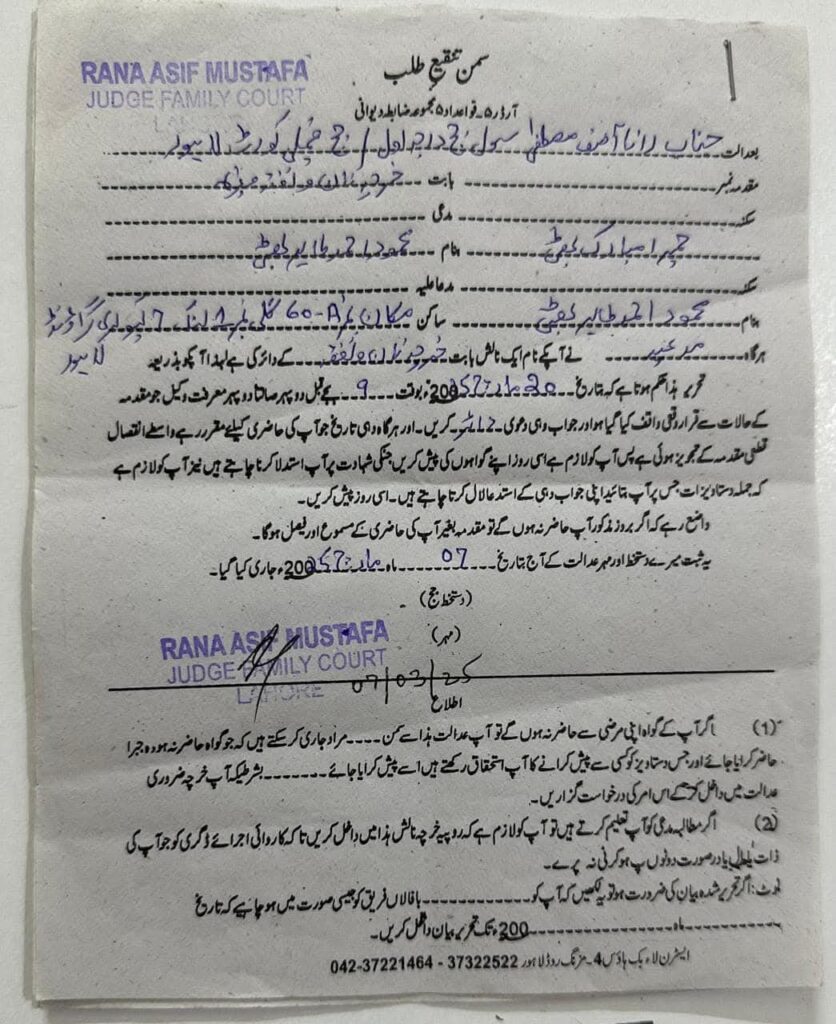 RANA ASIF MUSTAFA
JUDGE FAMILY COURT
LAHORE
سمن تنقیح طلب
آرڈر ۵۔ قواعد ا و ۵ مجموعہ ضابطہ دیوانی
بعدالت جناب رانا آصف مصطفیٰ سول جج درجہ اول / جج فیملی کورٹ لاہور
مقدمہ نمبر بابت خرچہ نان و نفقہ
سکنہ مدعی
مبارک بھٹی بنام محمود احمد طاہر بھٹی
سکنہ مدعا علیہ
بنام محمود احمد طاہر بھٹی ساکن مکان نمبر 60-A گلی نمبر 1 لنک
لاہور
ہرگاہ مدعیہ نے آپکے نام ایک نالش بابت خرچہ نان و نفقہ کے دائر کی ہے لہذا آپکو بذریعہ
تحریر ہذا حکم ہوتا ہے کہ بتاریخ 20 مارچ 2025ء بوقت 9 بجے قبل دوپہر اصالتا دوپہر معرفت وکیل جو مقدمہ
کے حالات سے قرار وقعی واقف کیا گیا ہو اور جواب دہی دعوی دائر کریں۔ اور ہرگاہ وہی تاریخ جو آپ کی حاضری کیلئے مقرر ہے واسطے انفصال
قطعی مقدمہ کے تجویز ہوئی ہے پس آپ کو لازم ہے اسی روز اپنے گواہوں کی پیش کریں جنکی شہادت پر آپ استدلا کرنا چاہتے ہیں نیز آپ کو لازم ہے
کہ جملہ دستاویزات جس پر آپ بتائید اپنی جواب دہی کے استدعالال کرنا چاہتے ہیں۔ اسی روز پیش کریں۔
واضح رہے کہ اگر بروز مذکور آپ حاضر نہ ہوں گے تو مقدمہ بغیر آپ کی حاضری کے مسموع اور فیصل ہوگا۔
یہ ثبت میرے دستخط اور مہر عدالت کے آج بتاریخ 07 ماہ مارچ 2025ء جاری کیا گیا۔
(دستخط جج)
(مہر)
RANA ASIF MUSTAFA
JUDGE FAMILY COURT
LAHORE
07/03/25
اطلاع
(1) اگر آپ کے گواہ اپنی مرضی سے حاضر نہ ہوں گے تو آپ عدالت ہذا سے سمن مراد جاری کر سکتے ہیں کہ جو گواہ حاضر نہ ہو وہ جبرا
حاضر کرایا جائے اور جس دستاویز کو کسی سے پیش کرانے کا آپ استحقاق رکھتے ہیں اسے پیش کرایا جائے بشرطیکہ آپ خرچہ ضروری
عدالت میں داخل کر کے اس امر کی درخواست گزاریں۔
(2) اگر مطالبہ مدعی کو آپ تعلیم کرتے ہیں تو آپ کو لازم ہے کہ روپیہ خرچہ نالش ہذا میں داخل کریں تا کہ کاروائی اجرائے ڈگری کو جو آپ کی
ذات یا مال یا در صورت دونوں پر ہو کرنی نہ پرے۔
نوٹ: اگر تحریر شدہ بیان کی ضرورت ہو تو یہ لکھیں کہ آپ کو یا فلاں فریق کو جیسی صورت میں ہو چاہیے کہ تاریخ
ماہ 200ء تک تحریر بیان داخل کریں۔
ایسٹرن لاء بک ہاؤس 4۔ مزنگ روڈ لاہور 37322522 - 37221464-042